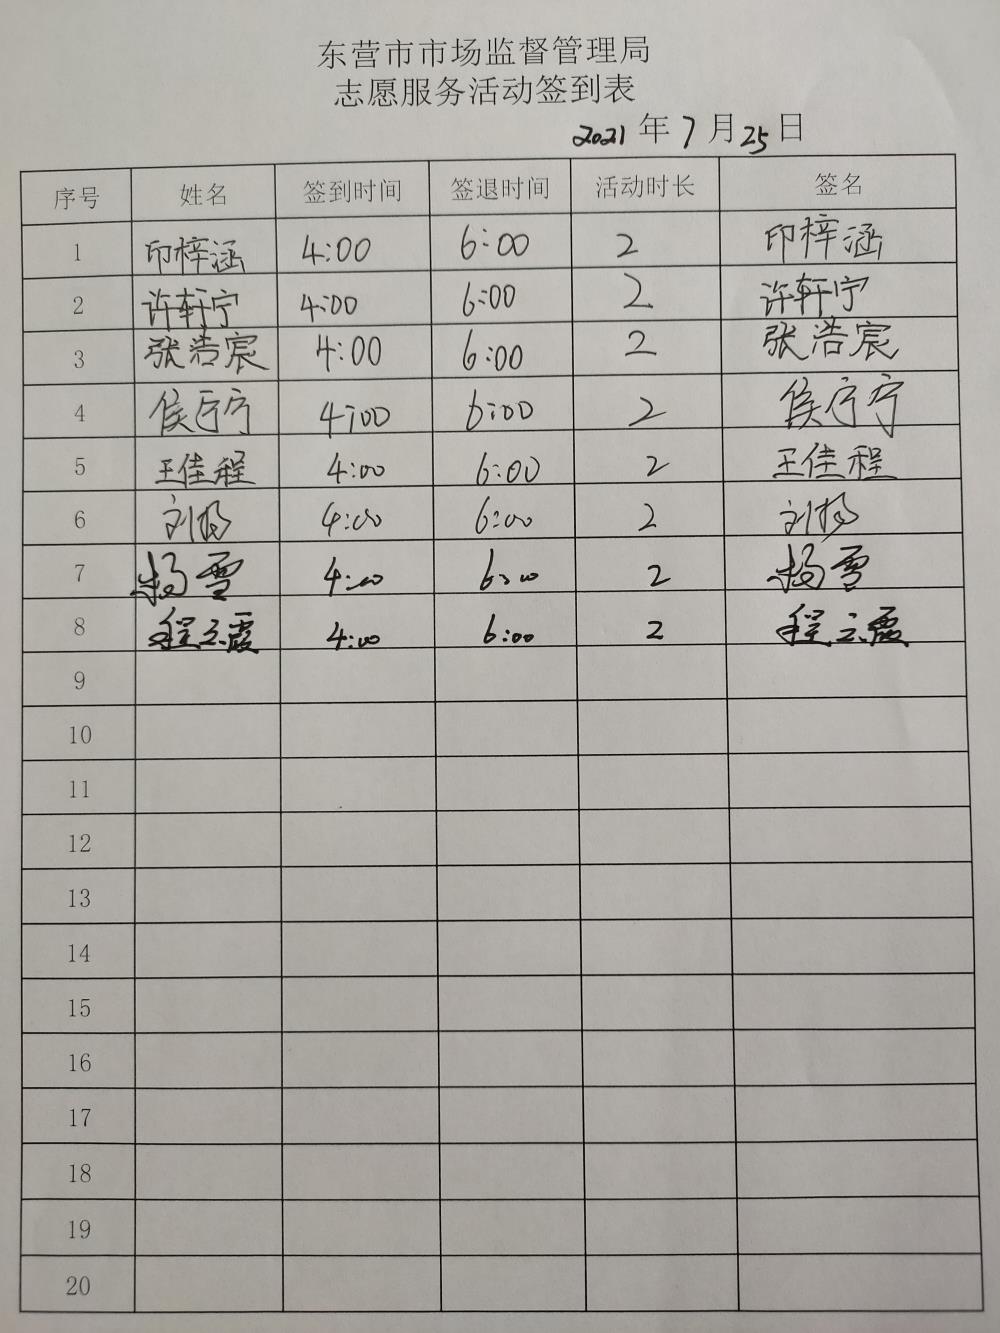 东营市市场监督管理局
志愿服务活动签到表
2021 年 7 月 25 日
序号 姓名 签到时间 签退时间 活动时长 签名
1 印梓涵 4:00 6:00 2 印梓涵
2 许轩宁 4:00 6:00 2 许轩宁
3 张浩宸 4:00 6:00 2 张浩宸
4 侯 4:00 6:00 2 侯
5 王佳程 4:00 6:00 2 王佳程
6 刘杨 4:00 6:00 2 刘杨
7 杨雪 4:00 6:00 2 杨雪
8 程云霞 4:00 6:00 2 程云霞
9
10
11
12
13
14
15
16
17
18
19
20